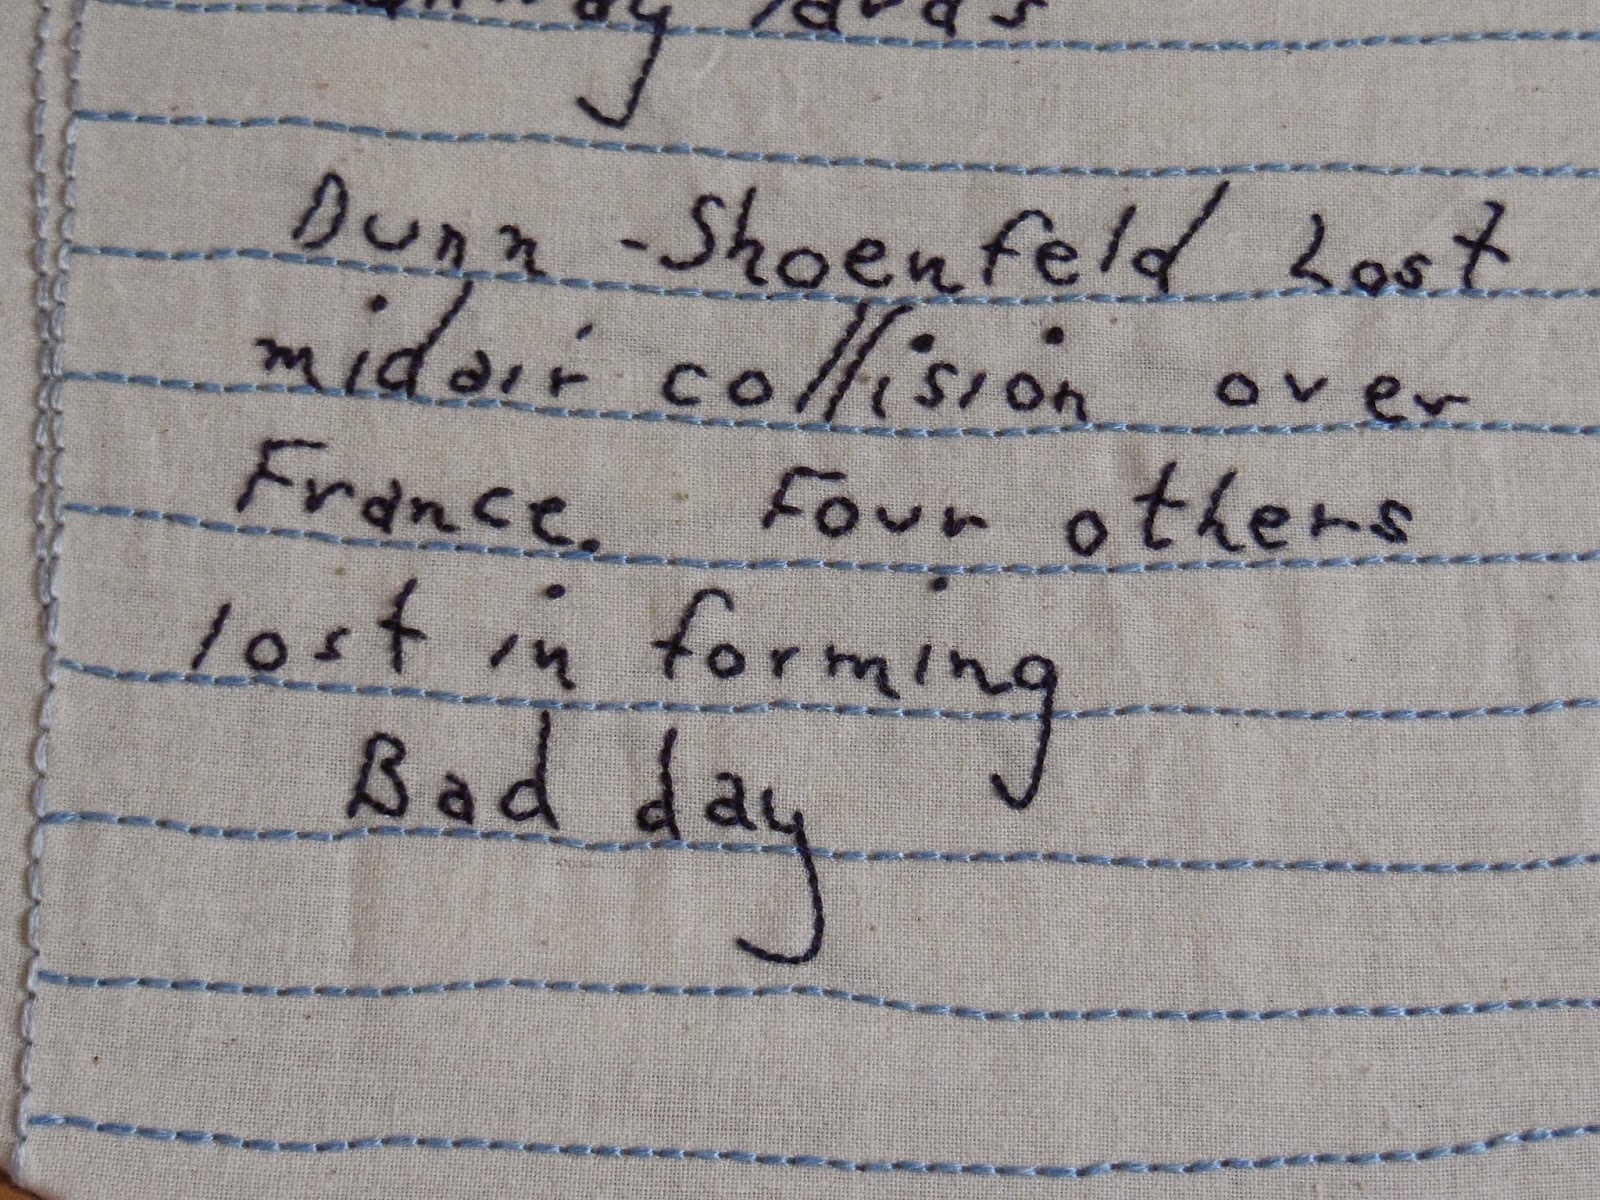 Dunn - Shoenfeld Lost
midair collision over
France. Four others
lost in forming
Bad day